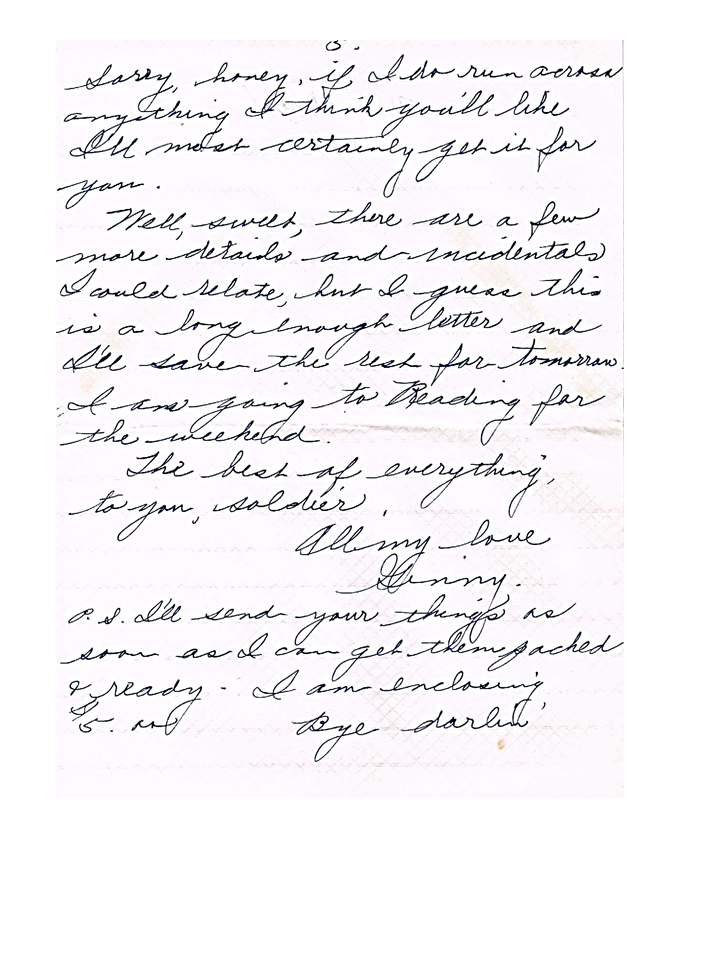 3.
Sorry, honey, if I do run across
anything I think you'll like
I'll most certainly get it for
you.
Well, sweet, there are a few
more details and incidentals
I could relate, but I guess this
is a long enough letter and
I'll save the rest for tomorrow.
I am going to Reading for
the weekend.
The best of everything,
to you, soldier.
All my love
Ginny.
P.S. I'll send your things as
soon as I can get them packed
& ready - I am enclosing
$5.00 Bye darlin'